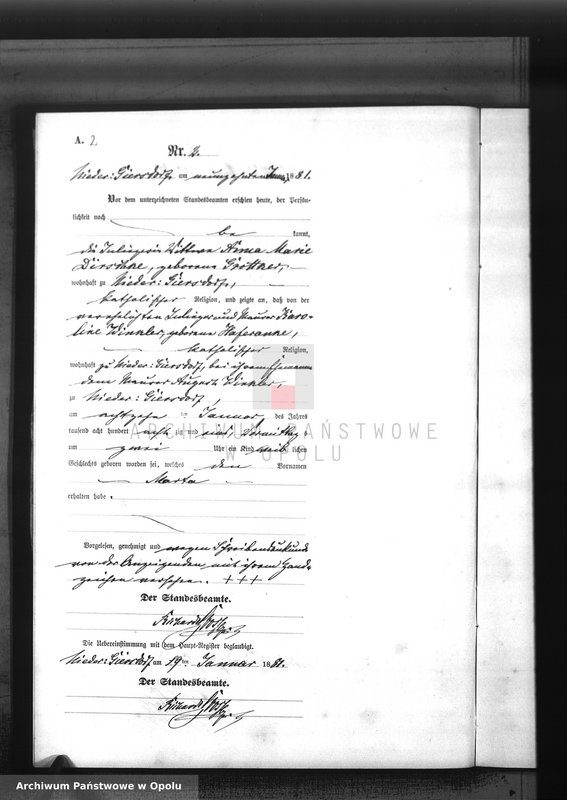 A. 2
Nr. 2.
Nieder: Giersdorf, am neunzehnten Januar 1881.
Vor dem unterzeichneten Standesbeamten erschien heute, der Persön-
lichkeit nach
be kannt,
die Inliegerin Wittwe Anna Marie
Dirschke, geborene Grottker,
wohnhaft zu Nieder: Giersdorf,
katholischer Religion, und zeigte an, daß von der
verehelichten Inlieger und Maurer Karo-
line Winkler, geborene
katholischer Religion,
wohnhaft zu Nieder: Giersdorf, bei ihrem Ehemanne
dem Maurer August Winkler,
zu Nieder: Giersdorf,
am achtzehn ten Januar, des Jahres
tausend acht hundert achtzig und eins, Vormittag s
um zwei Uhr ein Kind weib lichen
Geschlechts geboren worden sei, welches den Vornamen
Marta
erhalten habe.
Vorgelesen, genehmigt und wegen Schreibensunkunde
von der Anzeigenden mit ihrem Hand-
zeichen versehen. +++
Der Standesbeamte.
Die Uebereinstimmung mit dem Haupt-Register beglaubigt.
Nieder: Giersdorf am 19 ten Januar 1881.
Der Standesbeamte.
ARCHIWUM PAŃSTWOWE
W OPOLU
Archiwum Państwowe w Opolu